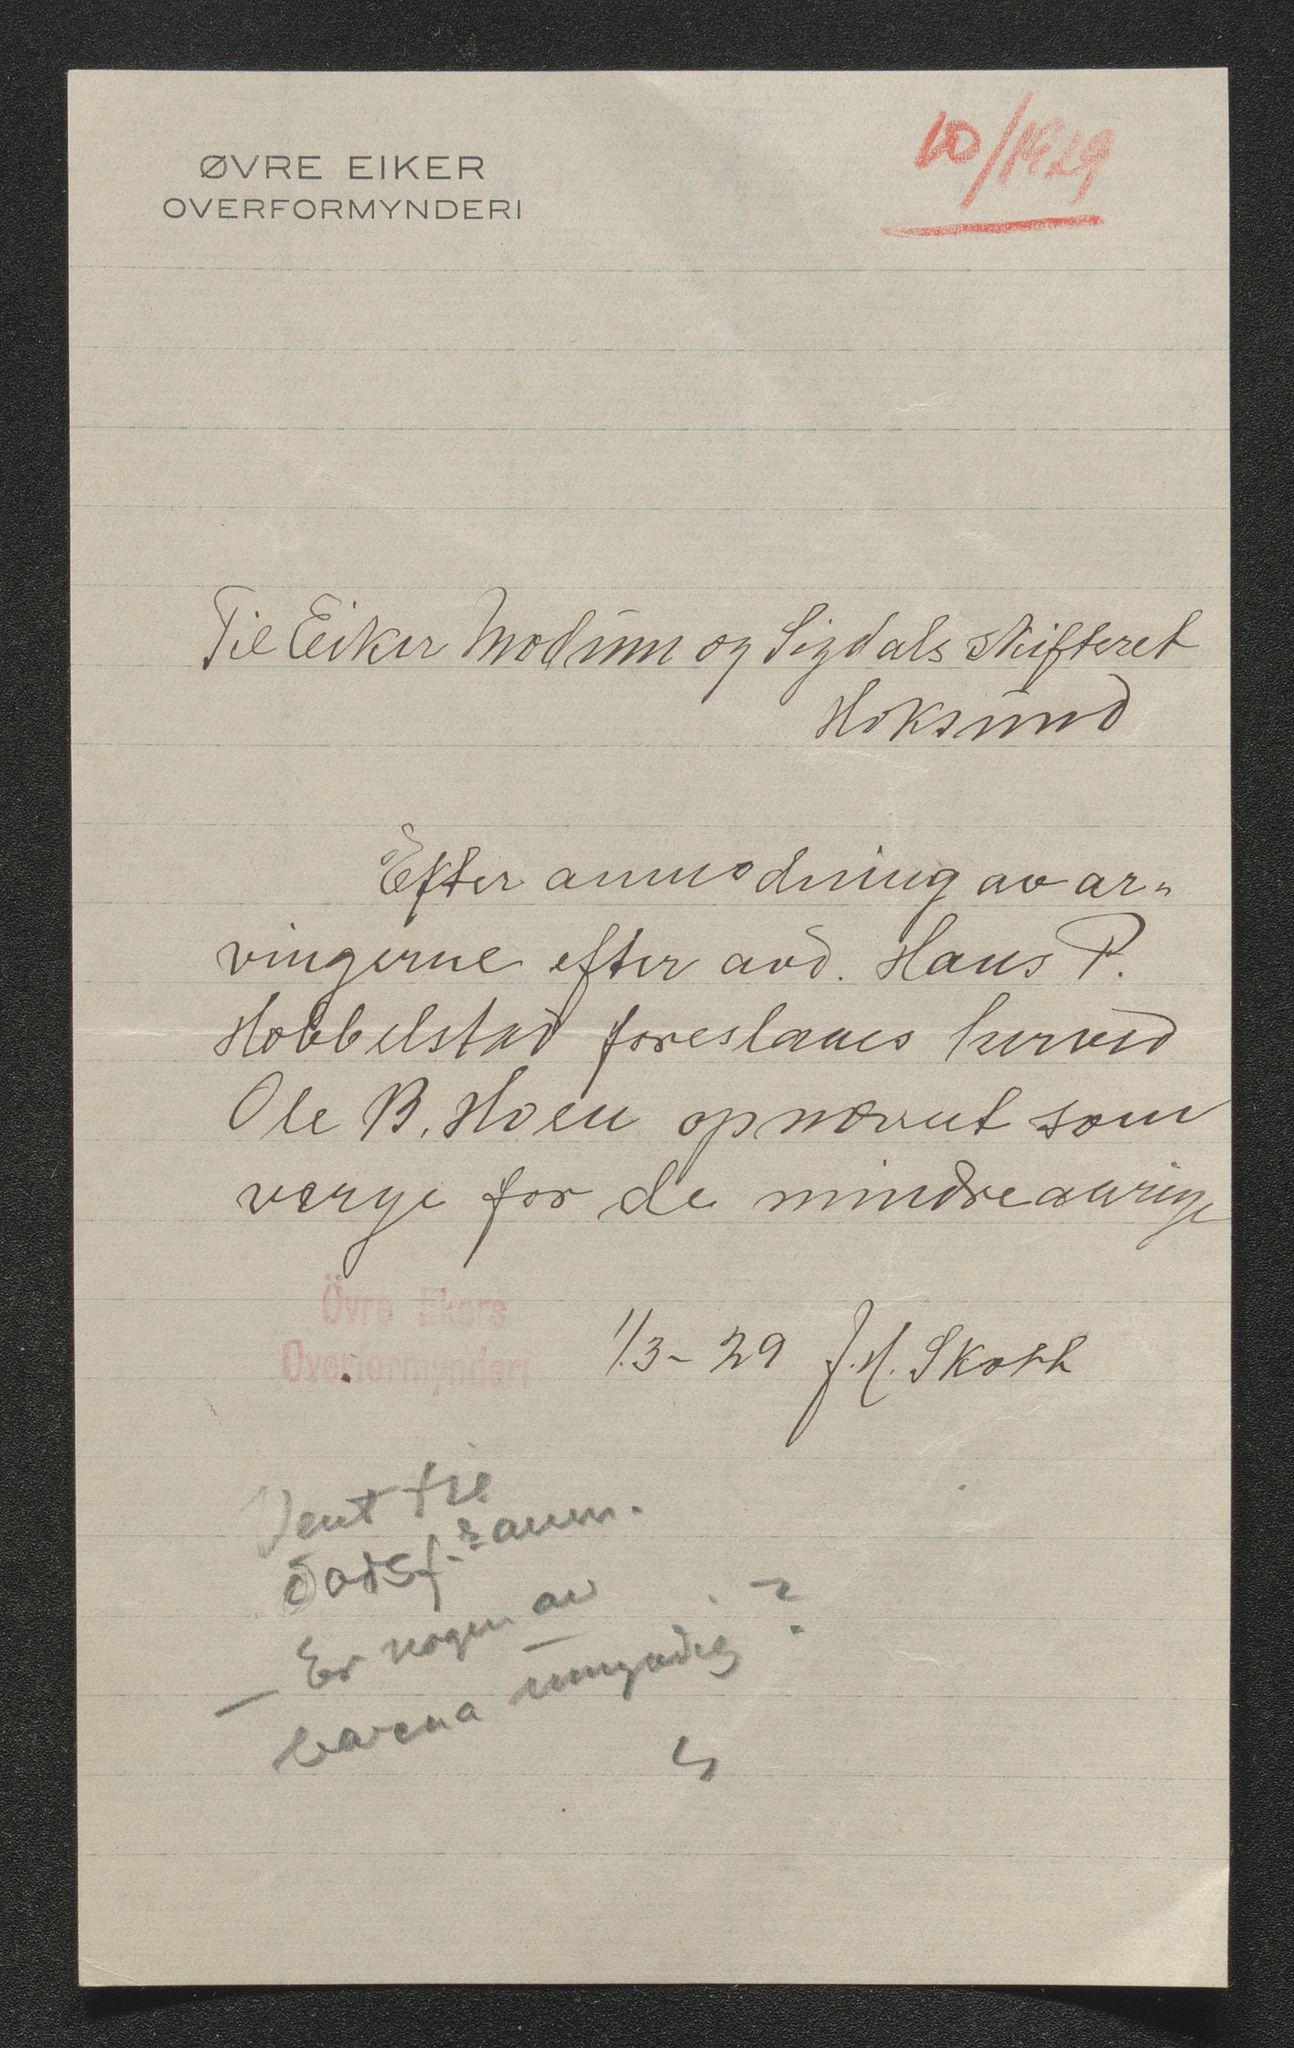 ØVRE EIKER
OVERFORMYNDERI
10/1929
Til Eiker Modum og Sigdals skifteret
Hoksund
Efter anmodning av ar-
vingerne efter avd. Hans P.
Hobbelstad foreslaaes herved
Ole B. Hoen opnævnt som
verge for de mindreaarige
Övre Ekers
Overformynderi
1/3-29 J. H. Skoth
Vent til
dødsf.
— Er nogen av
barna umyndig?